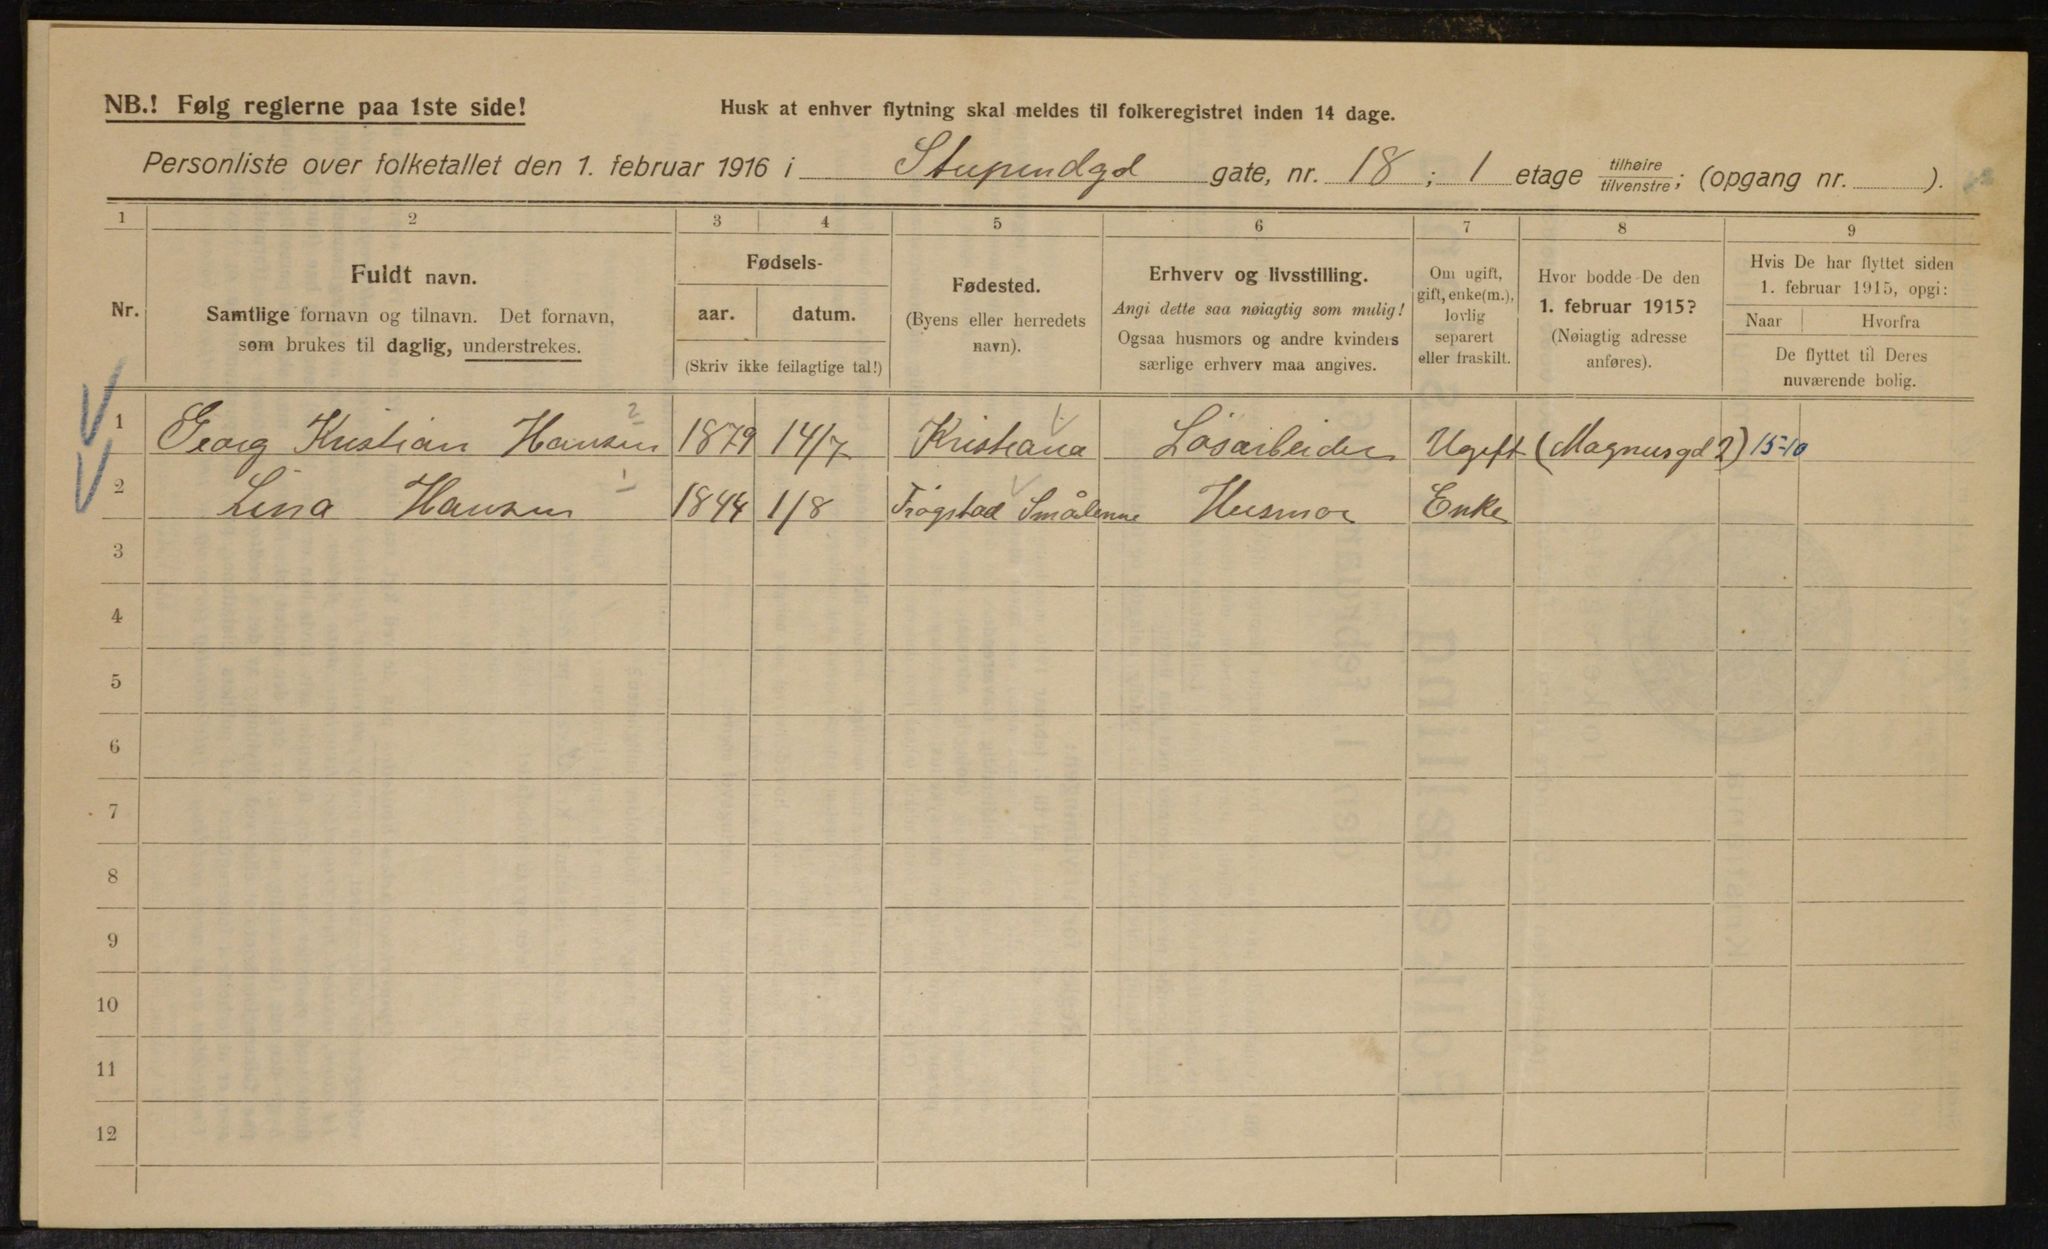 NB.! Følg reglerne paa 1ste side!
Husk at enhver flytning skal meldes til folkeregistret inden 14 dage.
Personliste over folketallet den 1. februar 1916 i Stupendgd gate, nr. 18 ; 1 etage tilhøire/tilvenstre; (opgang nr. ).
1 2 3 4 5 6 7 8 9
Nr.
Fuldt navn.
Samtlige fornavn og tilnavn. Det fornavn,
som brukes til daglig, understrekes.
Fødsels-
aar. datum.
(Skriv ikke feilagtige tal!)
Fødested.
(Byens eller herredets
navn).
Erhverv og livsstilling.
Angi dette saa nøiagtig som mulig!
Ogsaa husmors og andre kvinders
særlige erhverv maa angives.
Om ugift,
gift, enke(m.),
lovlig
separert
eller fraskilt.
Hvor bodde De den
1. februar 1915?
(Nøiagtig adresse
anføres).
Hvis De har flyttet siden
1. februar 1915, opgi:
Naar Hvorfra
De flyttet til Deres
nuværende bolig.
1 Georg Kristian Hansen 2 1879 14/7 Kristiana Løsarbeider Ugift (Magnusgd 2) 15-10
2 Lina Hansen 1 1844 1/8 Trøgstad Smålenne Husmor Enke
3
4
5
6
7
8
9
10
11
12